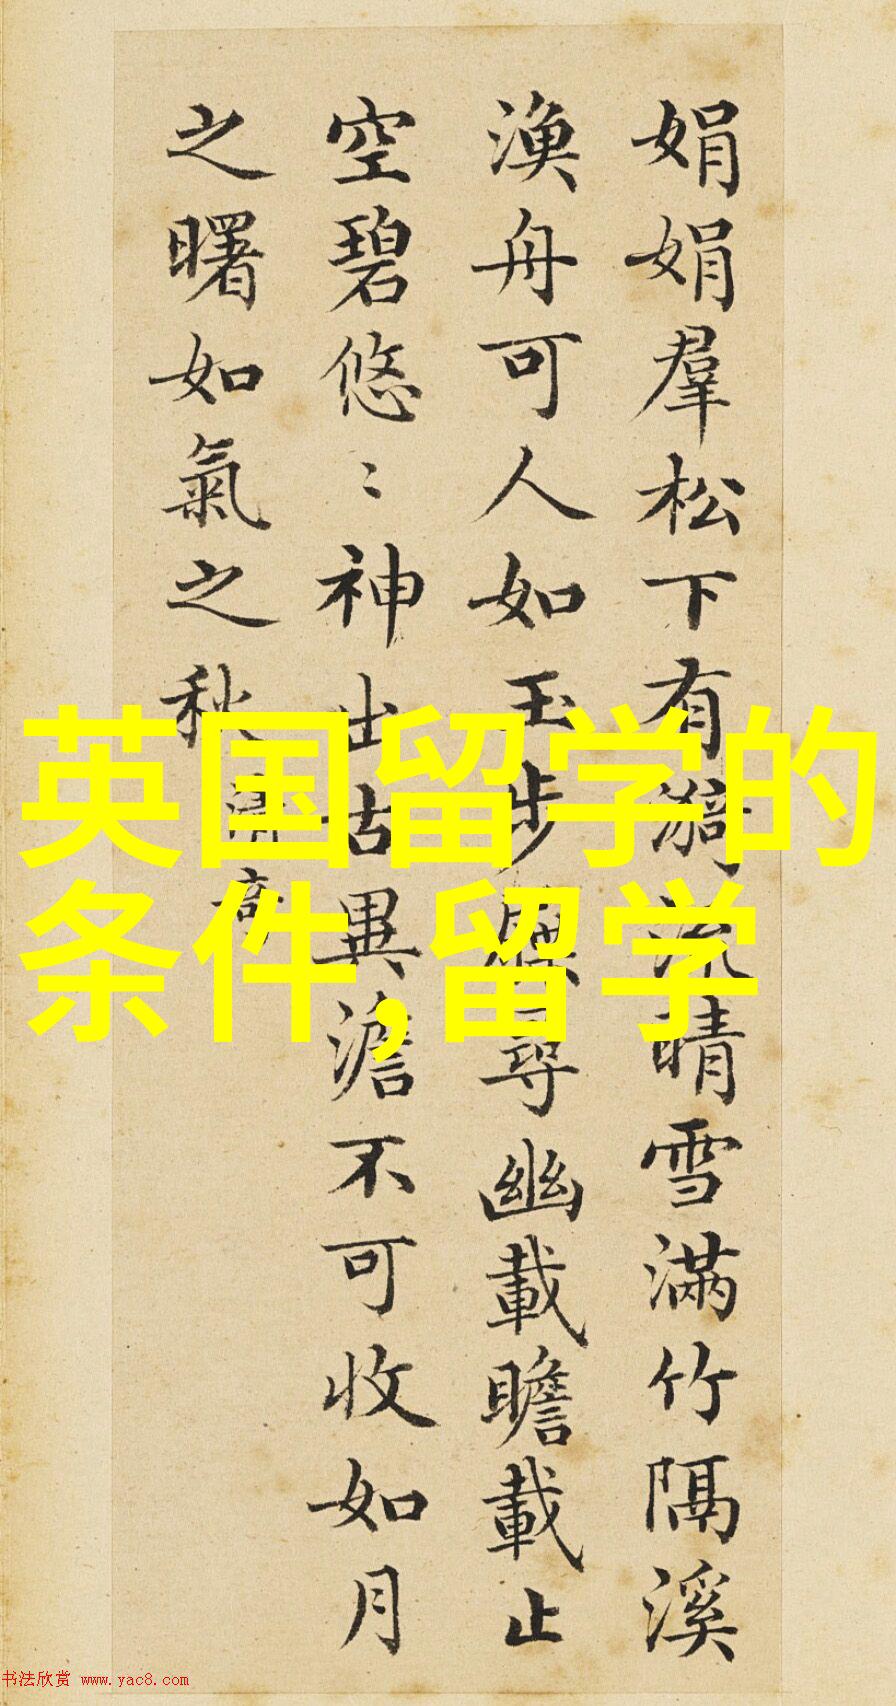 娟娟羣松下有漪流晴雪滿竹隔溪
漁舟可人如玉步屧尋幽載瞻載止
空碧悠〻神出古異澹不可收如月
之曙如氣之秋清奇
英国留学的
条件,留学
书法欣赏 www.yac8.com